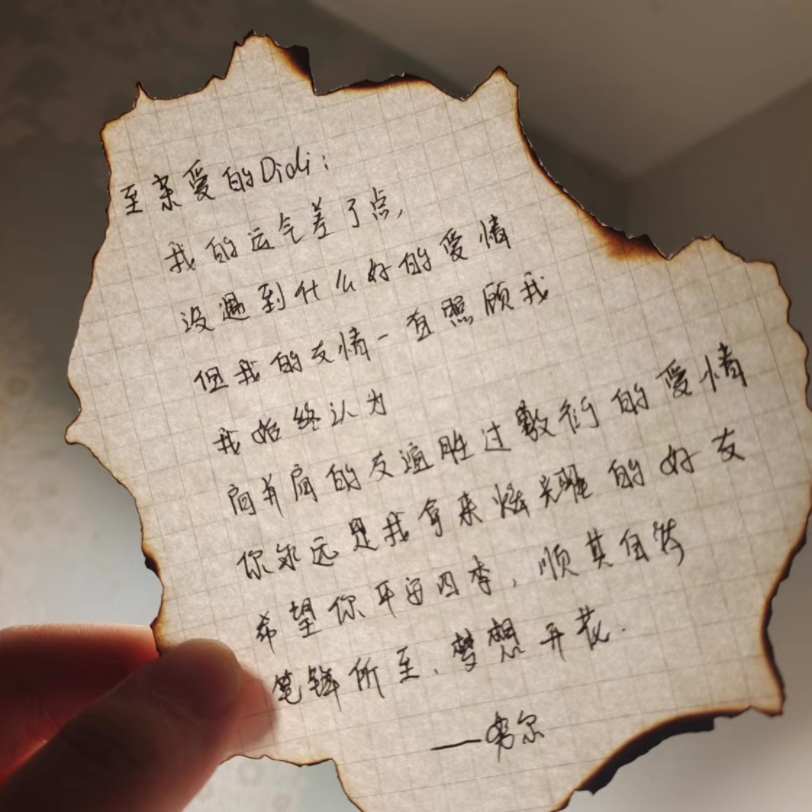 至亲爱的Didi:
我的运气差了点,
没遇到什么好的爱情
但我的友情一直照顾我
我始终认为
肩并肩的友谊胜过敷衍的爱情
你永远是我拿来炫耀的好友
希望你平安四季,顺其自然
笔锋所至、梦想开花.
——尔